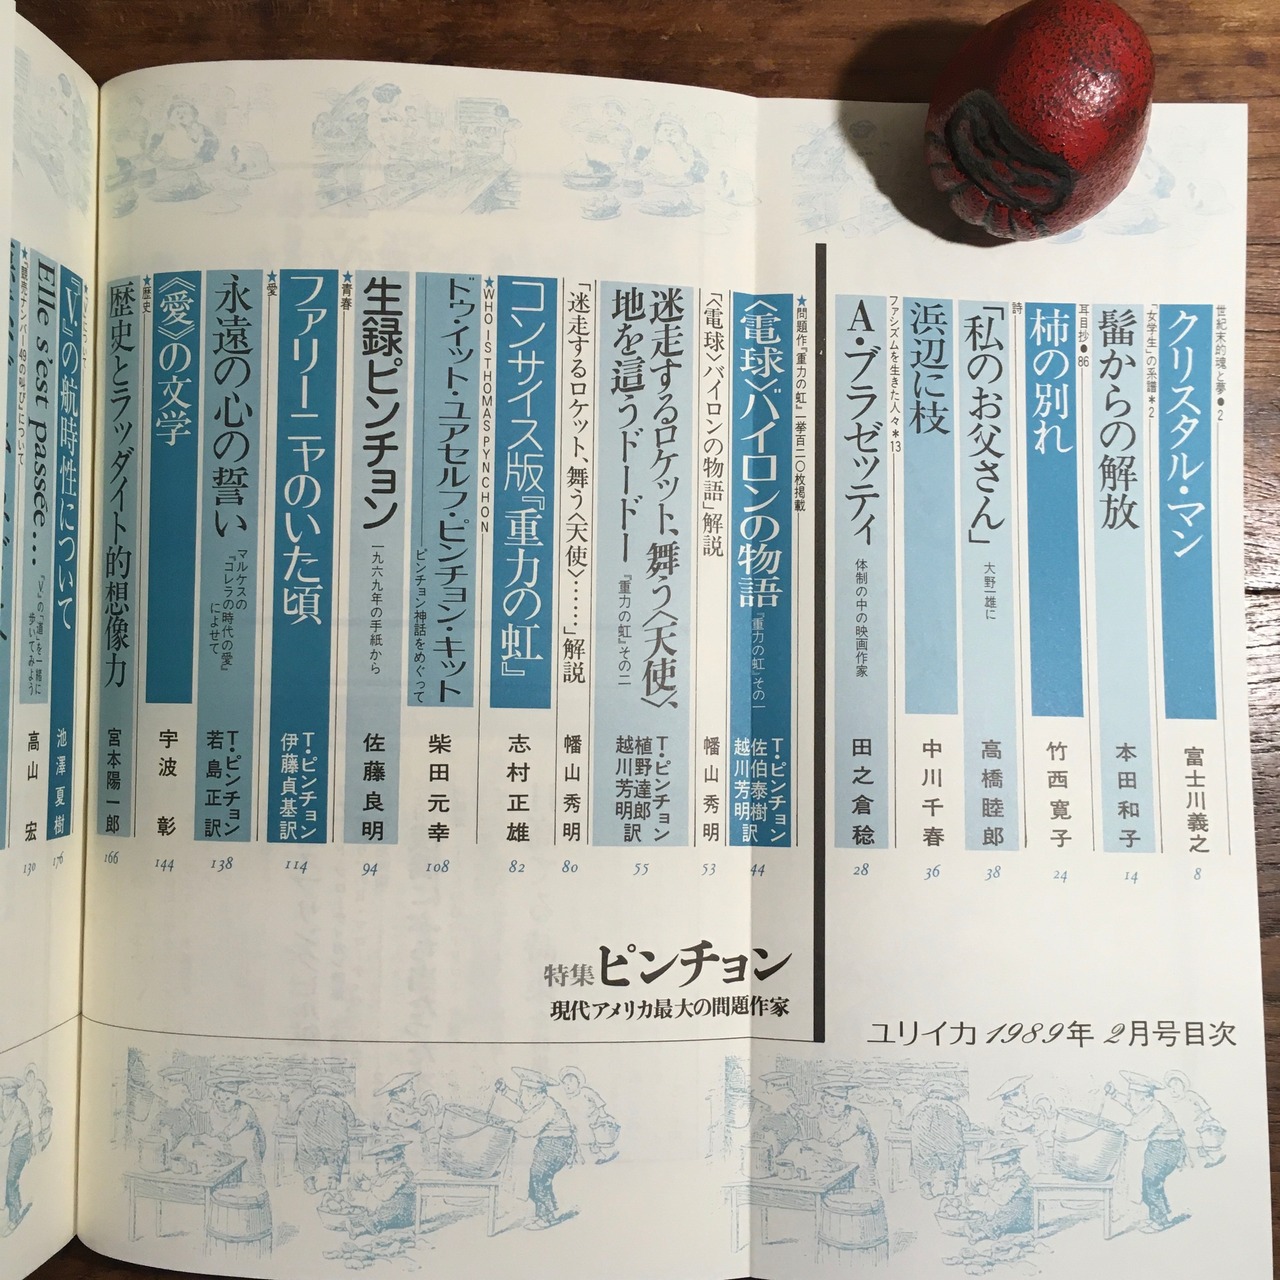 世紀末的魂と夢●2
クリスタル・マン
富士川義之
8
「女学生」の系譜＊2
髷からの解放
本田和子
14
耳目抄●86
柿の別れ
竹西寛子
24
詩
「私のお父さん」
大野一雄に
高橋睦郎
38
浜辺に枝
中川千春
36
ファシズムを生きた人々＊13
A・ブラゼッティ
体制の中の映画作家
田之倉稔
28
ユリイカ1989年2月号目次
特集ピンチョン
現代アメリカ最大の問題作家
★問題作『重力の虹』一挙百二〇枚掲載
〈電球〉バイロンの物語
『重力の虹』その一
T・ピンチョン
佐伯泰樹
越川芳明訳
44
「〈電球〉バイロンの物語」解説
幡山秀明
53
迷走するロケット、舞う〈天使〉、
地を這うドードー
『重力の虹』その二
T・ピンチョン
植野達郎
越川芳明訳
55
「迷走するロケット、舞う〈天使〉……」解説
幡山秀明
80
コンサイス版『重力の虹』
志村正雄
82
★WHO IS THOMAS PYNCHON
ドゥ・イット・ユアセルフ・ピンチョン・キット
ピンチョン神話をめぐって
柴田元幸
108
生録ピンチョン
一九六九年の手紙から
佐藤良明
94
★青春
ファリーニャのいた頃
T・ピンチョン
伊藤貞基訳
114
★愛
永遠の心の誓い
マルケスの
『コレラの時代の愛』
によせて
T・ピンチョン
若島正訳
138
《愛》の文学
宇波彰
144
★歴史
歴史とラッダイト的想像力
宮本陽一郎
166
『V.』の航時性について
池澤夏樹
176
Elle s'est passée…
『V.』の「道」を一緒に
歩いてみよう
高山宏
130
★『競売ナンバー49の叫び』について